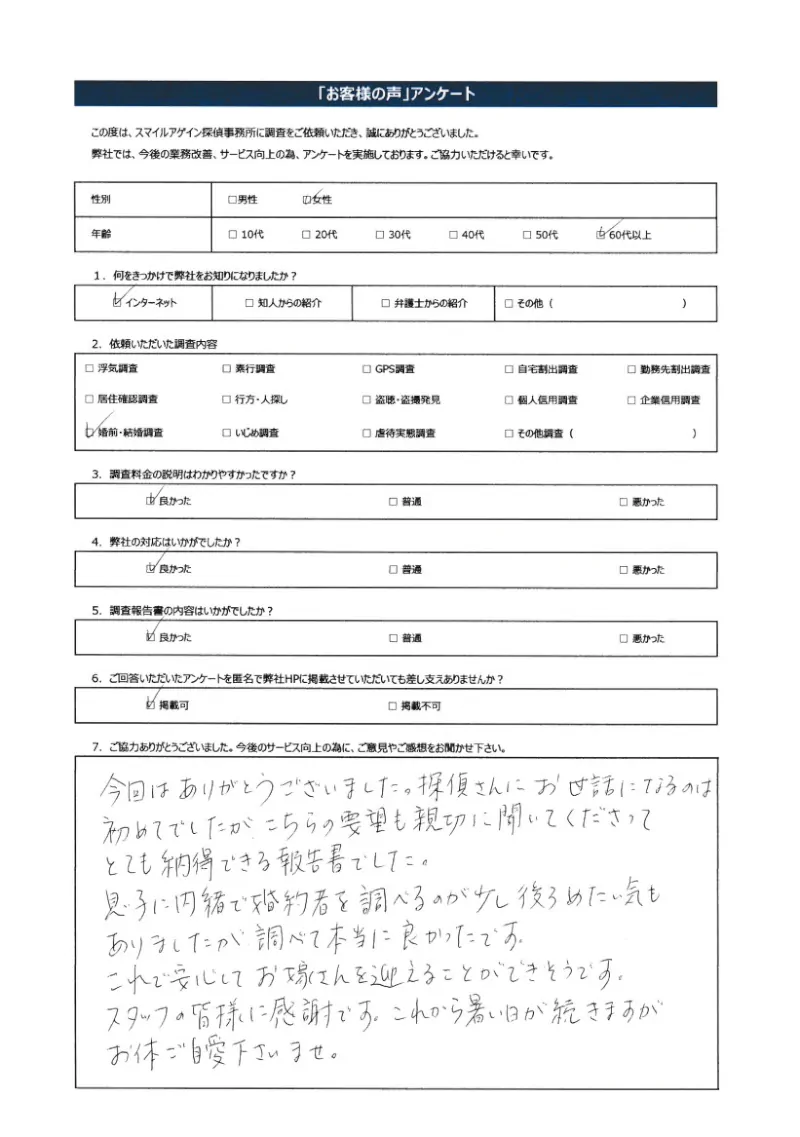 「お客様の声」アンケート
この度は、スマイルアゲイン探偵事務所に調査をご依頼いただき、誠にありがとうございました。
弊社では、今後の業務改善、サービス向上の為、アンケートを実施しております。ご協力いただけると幸いです。
性別 □男性 ☑女性
年齢 □ 10代 □ 20代 □ 30代 □ 40代 □ 50代 ☑ 60代以上
1. 何をきっかけで弊社をお知りになりましたか？
☑ インターネット □ 知人からの紹介 □ 弁護士からの紹介 □ その他（ ）
2. 依頼いただいた調査内容
□ 浮気調査 □ 素行調査 □ GPS調査 □ 自宅割出調査 □ 勤務先割出調査
□ 居住確認調査 □ 行方・人探し □ 盗聴・盗撮発見 □ 個人信用調査 □ 企業信用調査
☑ 婚前・結婚調査 □ いじめ調査 □ 虐待実態調査 □ その他調査（ ）
3. 調査料金の説明はわかりやすかったですか？
☑ 良かった □ 普通 □ 悪かった
4. 弊社の対応はいかがでしたか？
☑ 良かった □ 普通 □ 悪かった
5. 調査報告書の内容はいかがでしたか？
☑ 良かった □ 普通 □ 悪かった
6. ご回答いただいたアンケートを匿名で弊社HPに掲載させていただいても差し支えありませんか？
☑ 掲載可 □ 掲載不可
7. ご協力ありがとうございました。今後のサービス向上の為に、ご意見やご感想をお聞かせ下さい。
今回はありがとうございました。探偵さんにお世話になるのは
初めてでしたが こちらの要望も親切に聞いてくださって
とても納得できる報告書でした。
息子に内緒で婚約者を調べるのが少し後ろめたい気も
ありましたが調べて本当に良かったです。
これで安心してお嫁さんを迎えることができそうです。
スタッフの皆様に感謝です。これから暑い日が続きますが
お体ご自愛下さいませ。